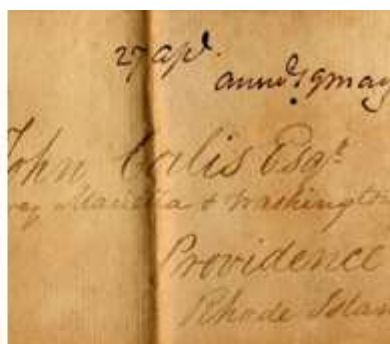 27 apl.
annd. 9 may
John Corlis Esqr
way Marietta & Washington
Providence
Rhode Islan